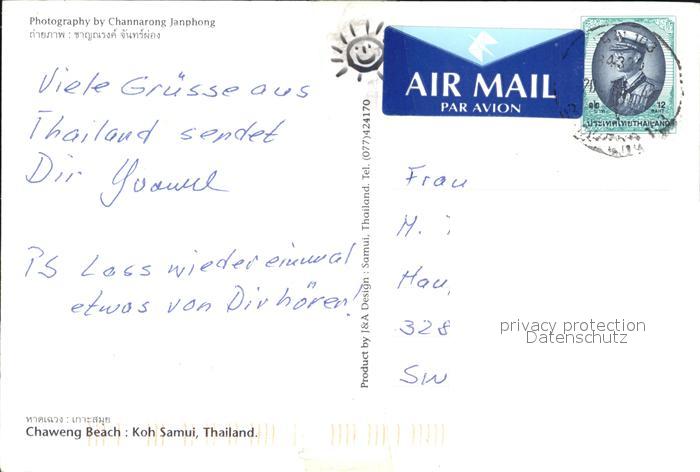 Photography by Channarong Janphong
ถ่ายภาพ : ชาญณรงค์ จันทร์ผ่อง
Viele Grüsse aus
Thailand sendet
Dir Yvonne
PS Lass wieder einmal
etwas von Dir hören!
หาดเฉวง : เกาะสมุย
Chaweng Beach : Koh Samui, Thailand.
Product by J&A Design : Samui, Thailand. Tel. (077)424170
AIR MAIL
PAR AVION
๑๒ 12
บาท BAHT
ประเทศไทย THAILAND
Frau
M.
Hau
328
SW
privacy protection
Datenschutz